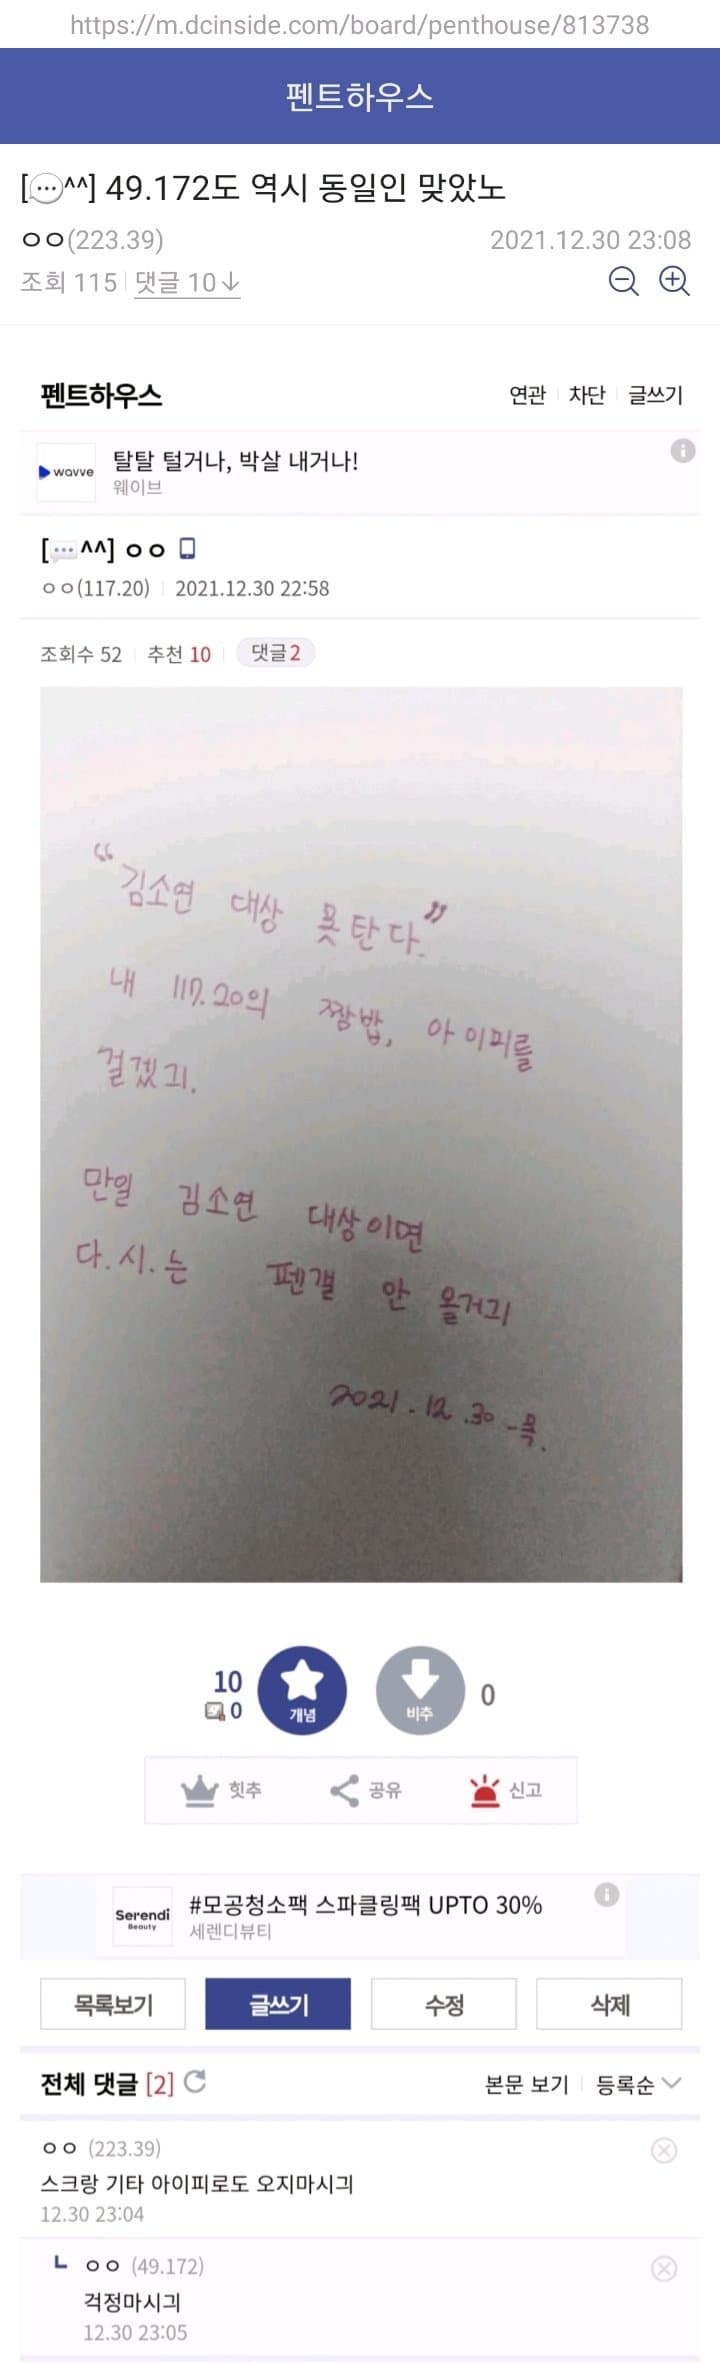 https://m.dcinside.com/board/penthouse/813738
펜트하우스
[💬^^] 49.172도 역시 동일인 맞았노
ㅇㅇ(223.39) 2021.12.30 23:08
조회 115 댓글 10↓
펜트하우스 연관 차단 글쓰기
wavve 탈탈 털거나, 박살 내거나!
웨이브
[💬^^] ㅇㅇ
ㅇㅇ(117.20) 2021.12.30 22:58
조회수 52 추천 10 댓글 2
“김소연 대상 못탄다.”
내 117.20의 짬밥, 아이피를
걸겠긔.
만일 김소연 대상이면
다.시.는 펜갤 안 올거긔
2021.12.30-목.
10 개념 비추 0
0
힛추 공유 신고
Serendi Beauty #모공청소팩 스파클링팩 UPTO 30%
세렌디뷰티
목록보기 글쓰기 수정 삭제
전체 댓글 [2] 본문 보기 등록순
ㅇㅇ (223.39)
스크랑 기타 아이피로도 오지마시긔
12.30 23:04
ㅇㅇ (49.172)
걱정마시긔
12.30 23:05